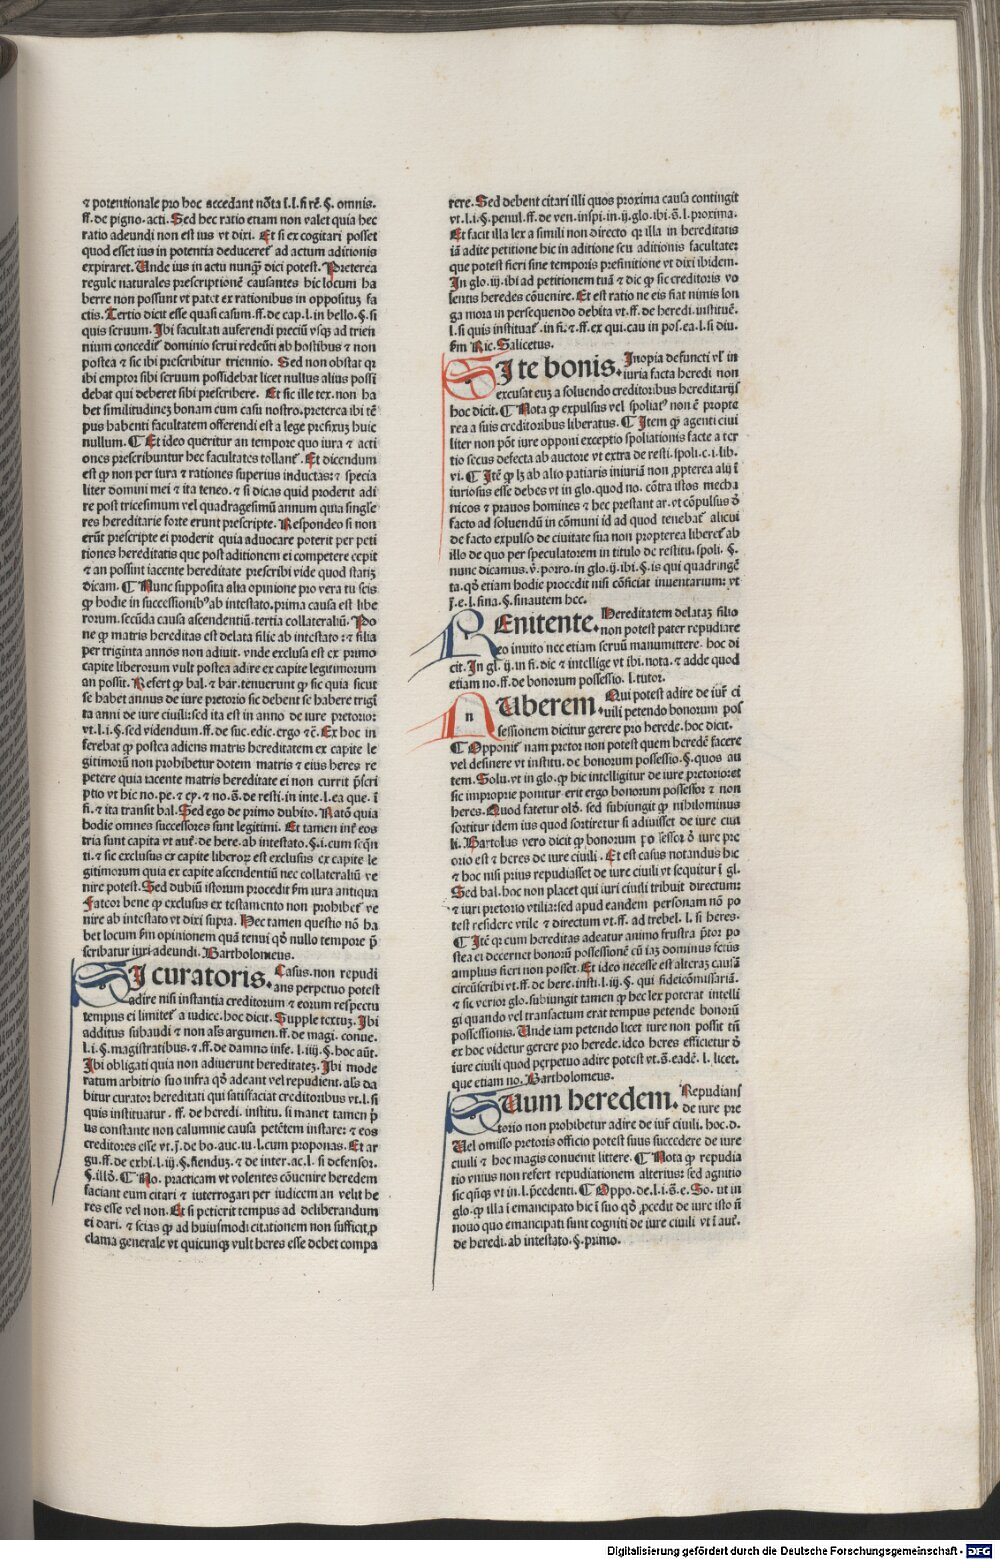 ⁊ potentionale pro hoc accedant nõta l.l. si rẽ. §. omnis.
ff. de pigno. acti. Sed hec ratio etiam non valet quia hec
ratio adeundi non est ius vt dixi. Et si ex cogitari posset
quod esset ius in potentia deduceret̃ ad actum aditionis
expiraret. Unde ius in actu nunq̃ dici potest. Preterea
regule naturales prescriptionẽ causantes hic locum ha
berre non possunt vt patet ex rationibus in opposituʒ fa
ctis. Tertio dicit esse quasi casum. ff. de cap. l. in bello. §. si
quis seruum. Ibi facultati auferendi preciũ vsqʒ ad trien
nium concedit̃ dominio serui redeũti ab hostibus ⁊ non
postea ⁊ sic ibi prescribitur triennio. Sed non obstat qr
ibi emptor sibi seruum possidebat licet nullus alius possi
debat qui deberet sibi prescribere. Et sic ille tex. non ha
bet similitudineʒ bonam cum casu nostro. preterea ibi tẽ
pus habenti facultatem offerendi est a lege prefixuʒ huic
nullum. ¶ Et ideo queritur an tempore quo iura ⁊ acti
ones prescribuntur hec facultates tollant̃. Et dicendum
est ꝙ non per iura ⁊ rationes superius inductas: ⁊ specia
liter domini mei ⁊ ita teneo. ⁊ si dicas quid proderit adi
re post tricesimum vel quadragesimũ annum quia singule
res hereditarie forte erunt prescripte. Respondeo si non
erũt prescripte ei proderit quia aduocare poterit per peti
tiones hereditatis que post aditionem ei competere cepit
⁊ an possint iacente hereditate prescribi vide quod statiʒ
dicam. ¶ Nunc supposita alia opinione pro vera tu scis
ꝙ hodie in successionibꝰ ab intestato. prima causa est libe
rorum. secũda causa ascendentiũ. tertia collateraliũ. Po
ne ꝙ matris hereditas est delata filie ab intestato: ⁊ filia
per triginta annos non adiuit. vnde exclusa est ex primo
capite liberorum vult postea adire ex capite legitimorum
an possit. Refert ꝙ bal. ⁊ bar. tenuerunt ꝙ sic quia sicut
se habet annus de iure pretorio sic debent se habere trigĩ
ta anni de iure ciuili: sed ita est in anno de iure pretorio:
vt. l. i. §. sed videndum. ff. de suc. edic. ergo ⁊c̃. Ex hoc in
ferebat ꝙ postea adiens matris hereditatem ex capite le
gitimorũ non prohibetur dotem matris ⁊ eius heres re
petere quia iacente matris hereditate ei non currit p̃scri
ptio vt hic no. pe. ⁊ cy. ⁊ no. s̃. de resti. in inte. l. ea que. ĩ
fi. ⁊ ita transit bal. Sed ego de primo dubito. Ratõ quia
hodie omnes successores sunt legitimi. Et tamen inť eos
tria sunt capita vt auť. de here. ab intestato. §. i. cum seq̃n
ti. ⁊ sic exclusus ex capite liberoꝝ est exclusus ex capite le
gitimorum quia ex capite ascendentiũ nec collateraliũ ve
nire potest. Sed dubiũ istorum procedit ẜm iura antiqua
Fateor bene ꝙ exclusus ex testamento non prohibet̃ ve
nire ab intestato vt dixi supra. Hec tamen questio nõ ha
bet locum ẜm opinionem quã tenui qõ nullo tempore p̃
scribatur iuri adeundi. Bartholomeus.
SI curatoris. Casus. non repudi
ans perpetuo potest
adire nisi instantia creditorum ⁊ eorum respectu
tempus ei limitet̃ a iudice. hoc dicit. Supple textuʒ. Ibi
additus subaudi ⁊ non als argumen. ff. de magi. conue.
l. i. §. magistratibus. ⁊ ff. de damno infe. l. iiij. §. hoc aũt.
Ibi obligati quia non adiuerunt hereditateʒ. Ibi mode
ratum arbitrio suo infra qõ adeant vel repudient. als da
bitur curator hereditati qui satisfaciat creditoribus vt. l. si
quis instituatur. ff. de heredi. institu. si manet tamen p̃
us constante non calumnie causa petẽtem instare: ⁊ eos
creditores esse vt. j̃. de bo. auc. iu. l. cum proponas. Et ar
gu. ff. de exhi. l. iij. §. siendũʒ. ⁊ de inter. ac. l. si defensor.
§. illõ. ¶ No. practicam vt volentes cõuenire heredem
faciant eum citari ⁊ interrogari per iudicem an velit he
res esse vel non. Et si petierit tempus ad deliberandum
ei dari. ⁊ scias ꝙ ad huiusmodi citationem non sufficit p̲
clama generale vt quicunqʒ vult heres esse debet compa
rere. Sed debent citari illi quos proxima causa contingit
vt. l. i. §. penul. ff. de ven. inspi. in. ij. glo. ibi. s̃. l. proxima.
Et facit illa lex a simili non directo qr illa in hereditatis
iã adite petitione hic in aditione seu aditionis facultate:
que potest fieri sine temporis prefinitione vt dixi ibidem.
In glo. iij. ibi ad petitionem tuã ⁊ dic ꝙ sic creditoris vo
lentis heredes cõuenire. Et est ratio ne eis fiat nimis lon
ga mora in persequendo debita vt. ff. de heredi. instituẽ.
l. si quis instituať. in fi. ⁊ ff. ex qui. cau in pos. ea. l. si diu.
ẜm Ric. Salicetus.
SI te bonis. Inopia defuncti vľ in
iuria facta heredi non
excusat euʒ a soluendo creditoribus hereditarijs
hoc dicit. ¶ Nota ꝙ expulsus vel spoliatꝰ non ẽ propte
rea a suis creditoribus liberatus. ¶ Item ꝙ agenti ciui
liter non põt iure opponi exceptio spoliationis facte a ter
tio secus defecta ab auctore vt extra de resti. spoli. c. i. lib.
vi. ¶ Itẽ ꝙ lʒ ab alio patiaris iniuriã non ꝓpterea alij ĩ
iuriosus esse debes vt in glo. quod no. cõtra istos mecha
nicos ⁊ prauos homines ⁊ hec prestant ar. vt cõpulsus õ
facto ad soluendũ in cõmuni id ad quod tenebat̃ alicui
de facto expulso de ciuitate sua non propterea liberet̃ ab
illo de quo per speculatorem in titulo de restitu. spoli. §.
nunc dicamus. v̓. porro. in glo. ij. ibi. §. is qui quadringẽ
ta. qõ etiam hodie procedit nisi cõficiat inuentarium: vt
j̃. e. l. fina. §. sinautem hec.
REnitente. Hereditatem delataʒ filio
non potest pater repudiare
eo inuito nec etiam seruũ manumittere. hoc di
cit. In gl. ij. in fi. dic ⁊ intellige vt ibi. nota. ⁊ adde quod
etiam no. ff. de bonorum possessio. l. tutor.
n
Uberem. Qui potest adire de iuř ci
uili petendo bonorum pos
sessionem dicitur gerere pro herede. hoc dicit.
¶ Opponit̃ nam pretor non potest quem heredẽ facere
vel desinere vt institu. de bonorum possessio. §. quos au
tem. Solu. vt in glo. ꝙ hic intelligitur de iure pretorio: et
sic improprie ponitur erit ergo bonorum possessor ⁊ non
heres. Quod fatetur olõ. sed subiungit ꝙ nihilominus
sortitur idem ius quod sortiretur si adiuisset de iure ciui
li. Bartolus vero dicit ꝙ bonorum possessor õ iure pre
orio est ⁊ heres de iure ciuili. Et est casus notandus hic
⁊ hoc nisi prius repudiasset de iure ciuili vt sequitur ĩ gl.
Sed bal. hoc non placet qui iuri ciuili tribuit directum:
⁊ iuri pretorio vtilia: sed apud eandem personam nõ po
test residere vtile ⁊ directum vt. ff. ad trebel. l. si heres.
¶ Itẽ qr cum hereditas adeatur animo frustra p̃tor po
stea ei decernet bonorũ possessionẽ cũ iaʒ dominus fctũs
amplius fieri non posset. Et ideo necesse est alteraʒ causã
circũscribi vt. ff. de here. insti. l. iij. §. qui fideicõmissariã.
⁊ sic verior glo. subiungit tamen ꝙ hec lex poterat intelli
gi quando vel transactum erat tempus petende bonorũ
possessionis. Unde iam petendo licet iure non possit tñ
ex hoc videtur gerere pro herede. ideo heres efficietur õ
iure ciuili quod perpetuo adire potest vt. s̃. eadẽ. l. licet.
que etiam no. Bartholomeus.
SUum heredem. Repudians
de iure pre
torio non prohibetur adire de iuř ciuili. hoc. d.
Uel omisso pretoris officio potest suus succedere de iure
ciuili ⁊ hoc magis conuenit littere. ¶ Nota ꝙ repudia
tio vnius non refert repudiationem alterius: sed agnitio
sic qñqʒ vt in. l. p̃cedenti. ¶ Oppo. de. l. i. s̃. e. So. ut in
glo. ꝙ illa ĩ emancipato hic ĩ suo qõ ꝓcedit de iure isto ñ
nouo quo emancipati sunt cogniti de iure ciuili vt ĩ auť.
de heredi. ab intestato. §. primo.
Digitalisierung gefördert durch die Deutsche Forschungsgemeinschaft - DFG